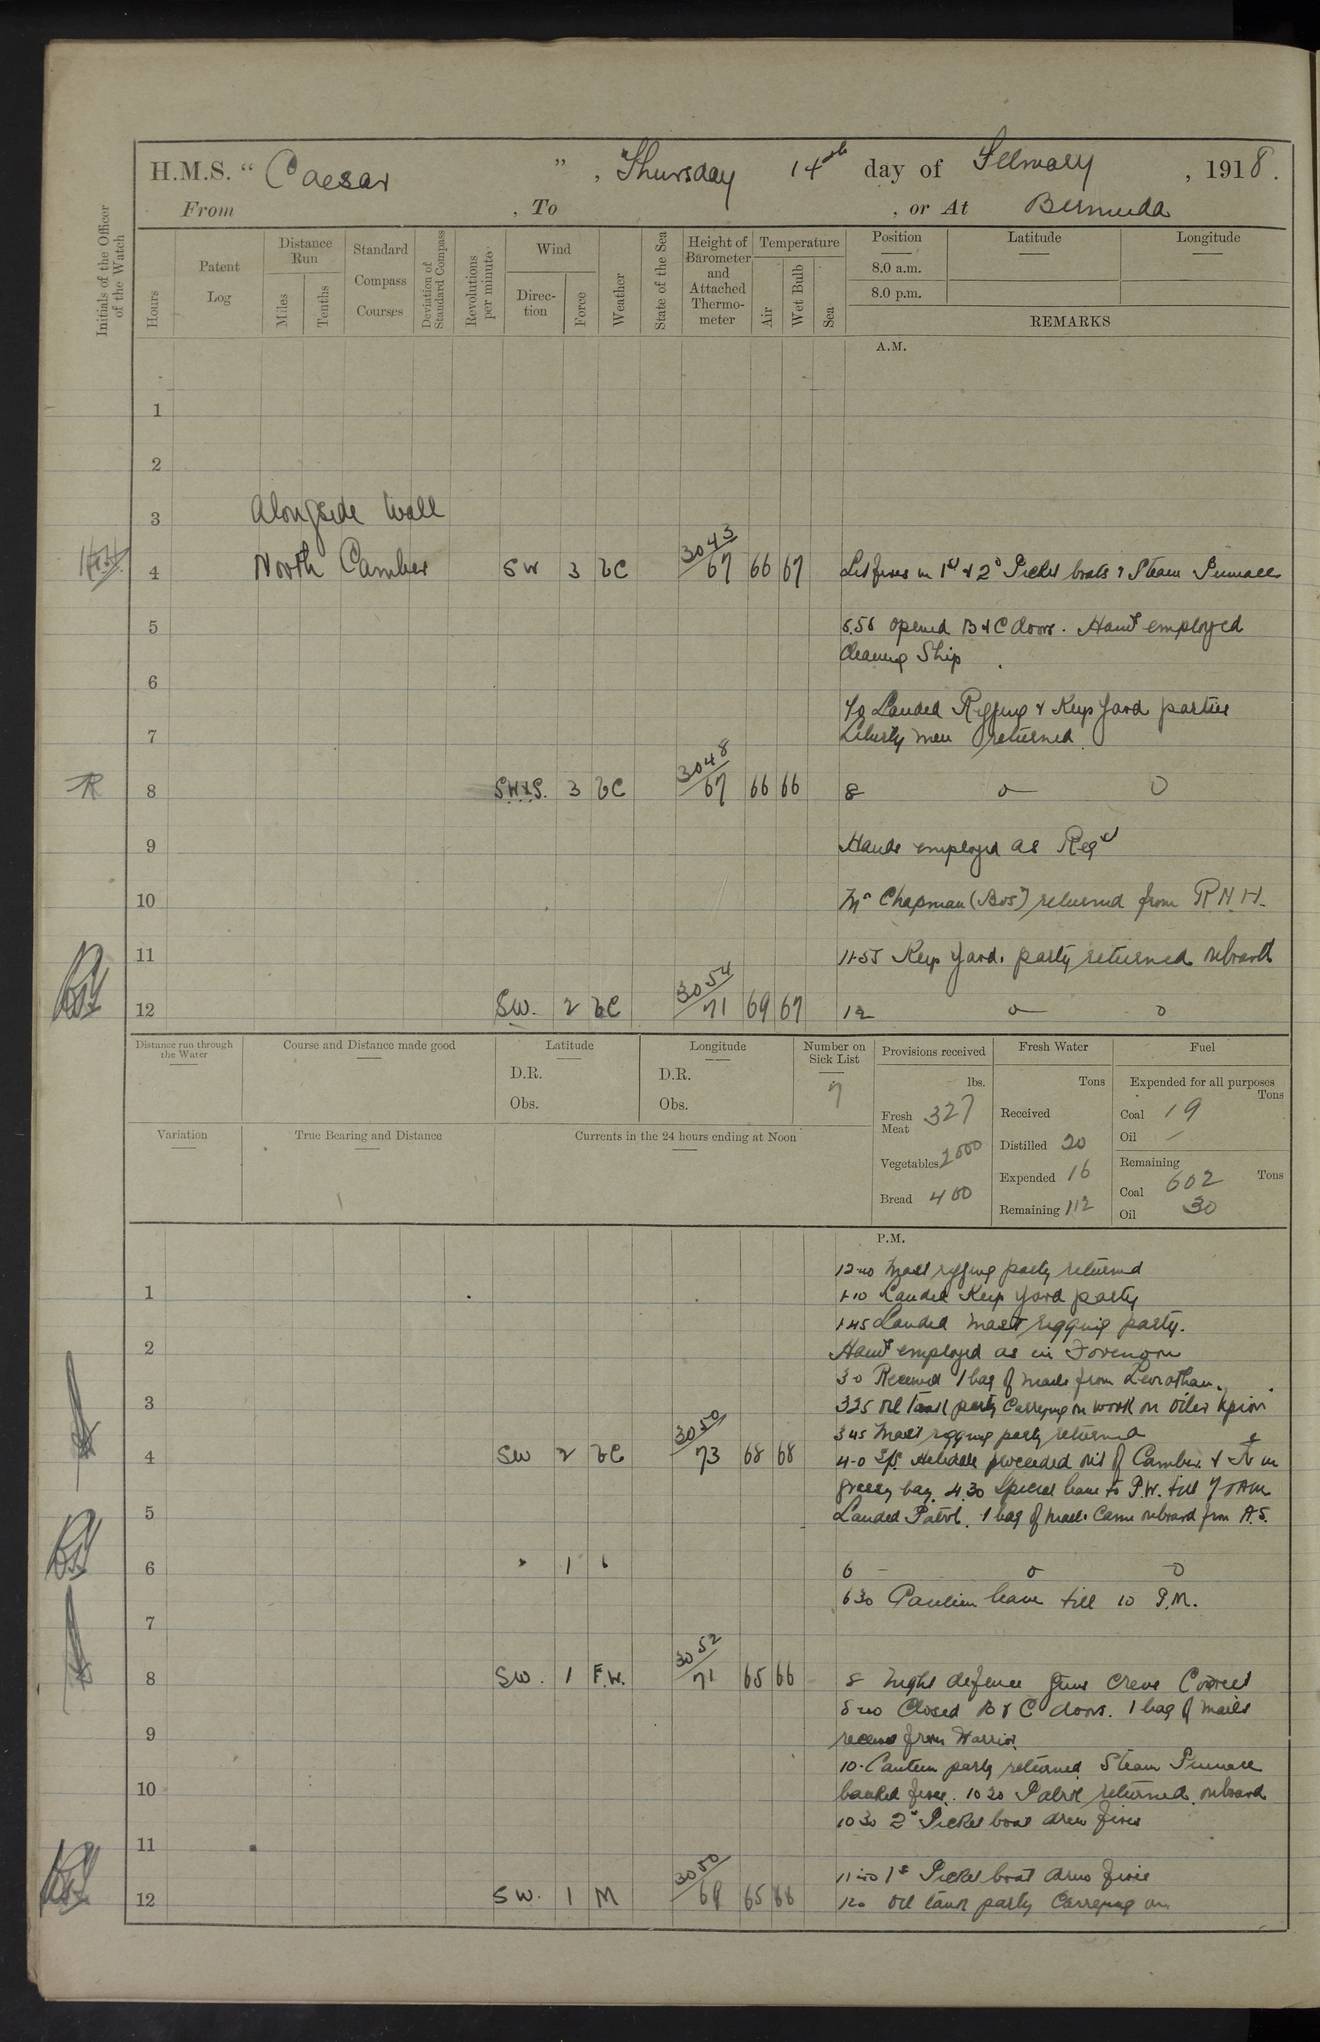 H.M.S. "Caesar", Thursday 14th day of February, 1918.
From , To , or At Bermuda
Initials of the Officer of the Watch
Hours
Patent Log
Distance Run
Miles
Tenths
Standard Compass Courses
Deviation of Standard Compass
Revolutions per minute
Wind
Direction
Force
Weather
State of the Sea
Height of Barometer and Attached Thermometer
Temperature
Air
Wet Bulb
Sea
Position
8.0 a.m.
8.0 p.m.
Latitude
Longitude
REMARKS
A.M.
1
2
3 Alongside Wall
4 North Camber SW 3 bC 3043/67 66 67 Lit fires in 1st & 2d Picket boats & Steam Pinnace
5 opened B & C doors. Hands employed
cleaning Ship
6
Landed Rigging & Keep Yard parties
7 Liberty men returned
8 3 bC 3048/67 66 66 8 o o
9 Hands employed as Reqd
10 Mr Chapman (Bosn) returned from R.N.H.
11 11-55 Keep Yard party returned onboard
12 SW. 2 bC 3054/71 69 67 12 o o
Distance run through the Water
Course and Distance made good
Latitude
D.R.
Obs.
Longitude
D.R.
Obs.
Number on Sick List
7
Provisions received
lbs.
Fresh Meat 327
Vegetables 2000
Bread 400
Fresh Water
Tons
Received
Distilled 20
Expended 16
Remaining 112
Fuel
Expended for all purposes
Tons
Coal 19
Oil /
Remaining
Tons
Coal 602
Oil 30
Variation
True Bearing and Distance
Currents in the 24 hours ending at Noon
P.M.
Mast rigging party returned
1 1-10 Landed Keep Yard party
1-45 Landed mast rigging party.
2 Hands employed as in Forenoon
3 0 Received 1 bag of mails from Leviathan.
3 3 25 Oil tank party Carrying on work on Oiler
3 45 Mast rigging party returned
4 SW 2 bC 3050/73 68 68 4-0 S/S proceeded out of Camber & in
grassy bay. 4.30 Special leave to P.W. till 7 0 AM
5 Landed Patrol. 1 bag of mails Came onboard from A.S.
6 " 1 " 6 - o o
6 30 Canteen leave till 10 P.M.
7
8 SW. 1 F.W. 3052/71 65 66 8 Night defence Guns Crews Correct
Closed B & C doors. 1 bag of mails
9 received from Warrior.
10. Canteen party returned Steam Pinnace
10 banked fires. 10 20 Patrol returned onboard
10 30 2d Picket boat drew fires
11
1st Picket boat drew fires
12 SW. 1 M 3050/69 65 66 Oil tank party Carrying on